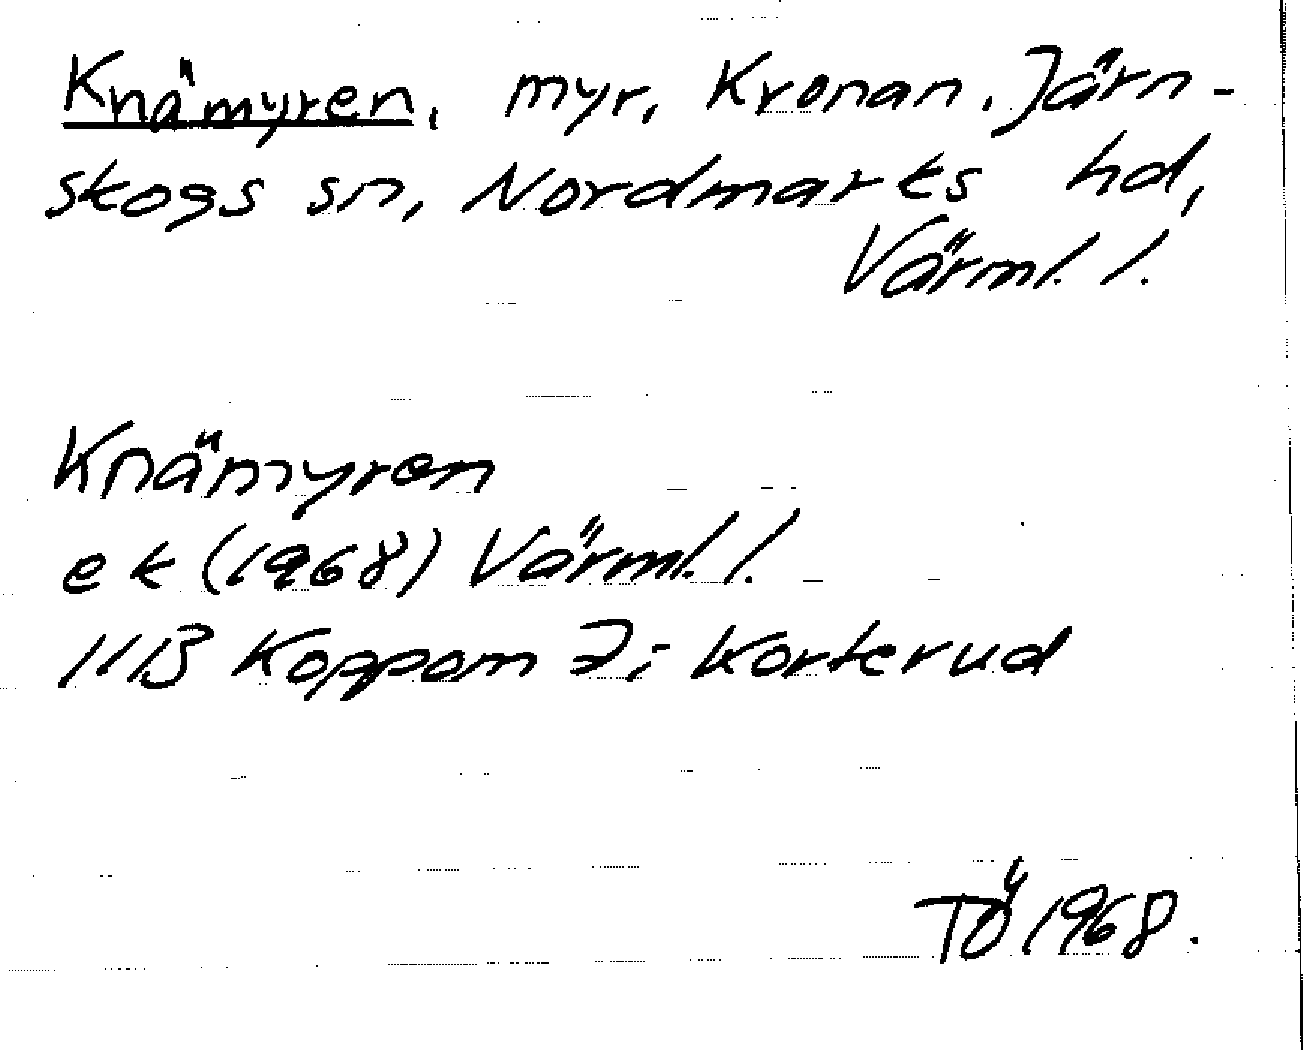 Knämyren, myr, Kronan. Järn-
skogs sn, Nordmarks hd,
Värml. l.
Knämyren
ek (1968) Värml. l.
11B Koppom 7i Korterud
TÖ 1968.